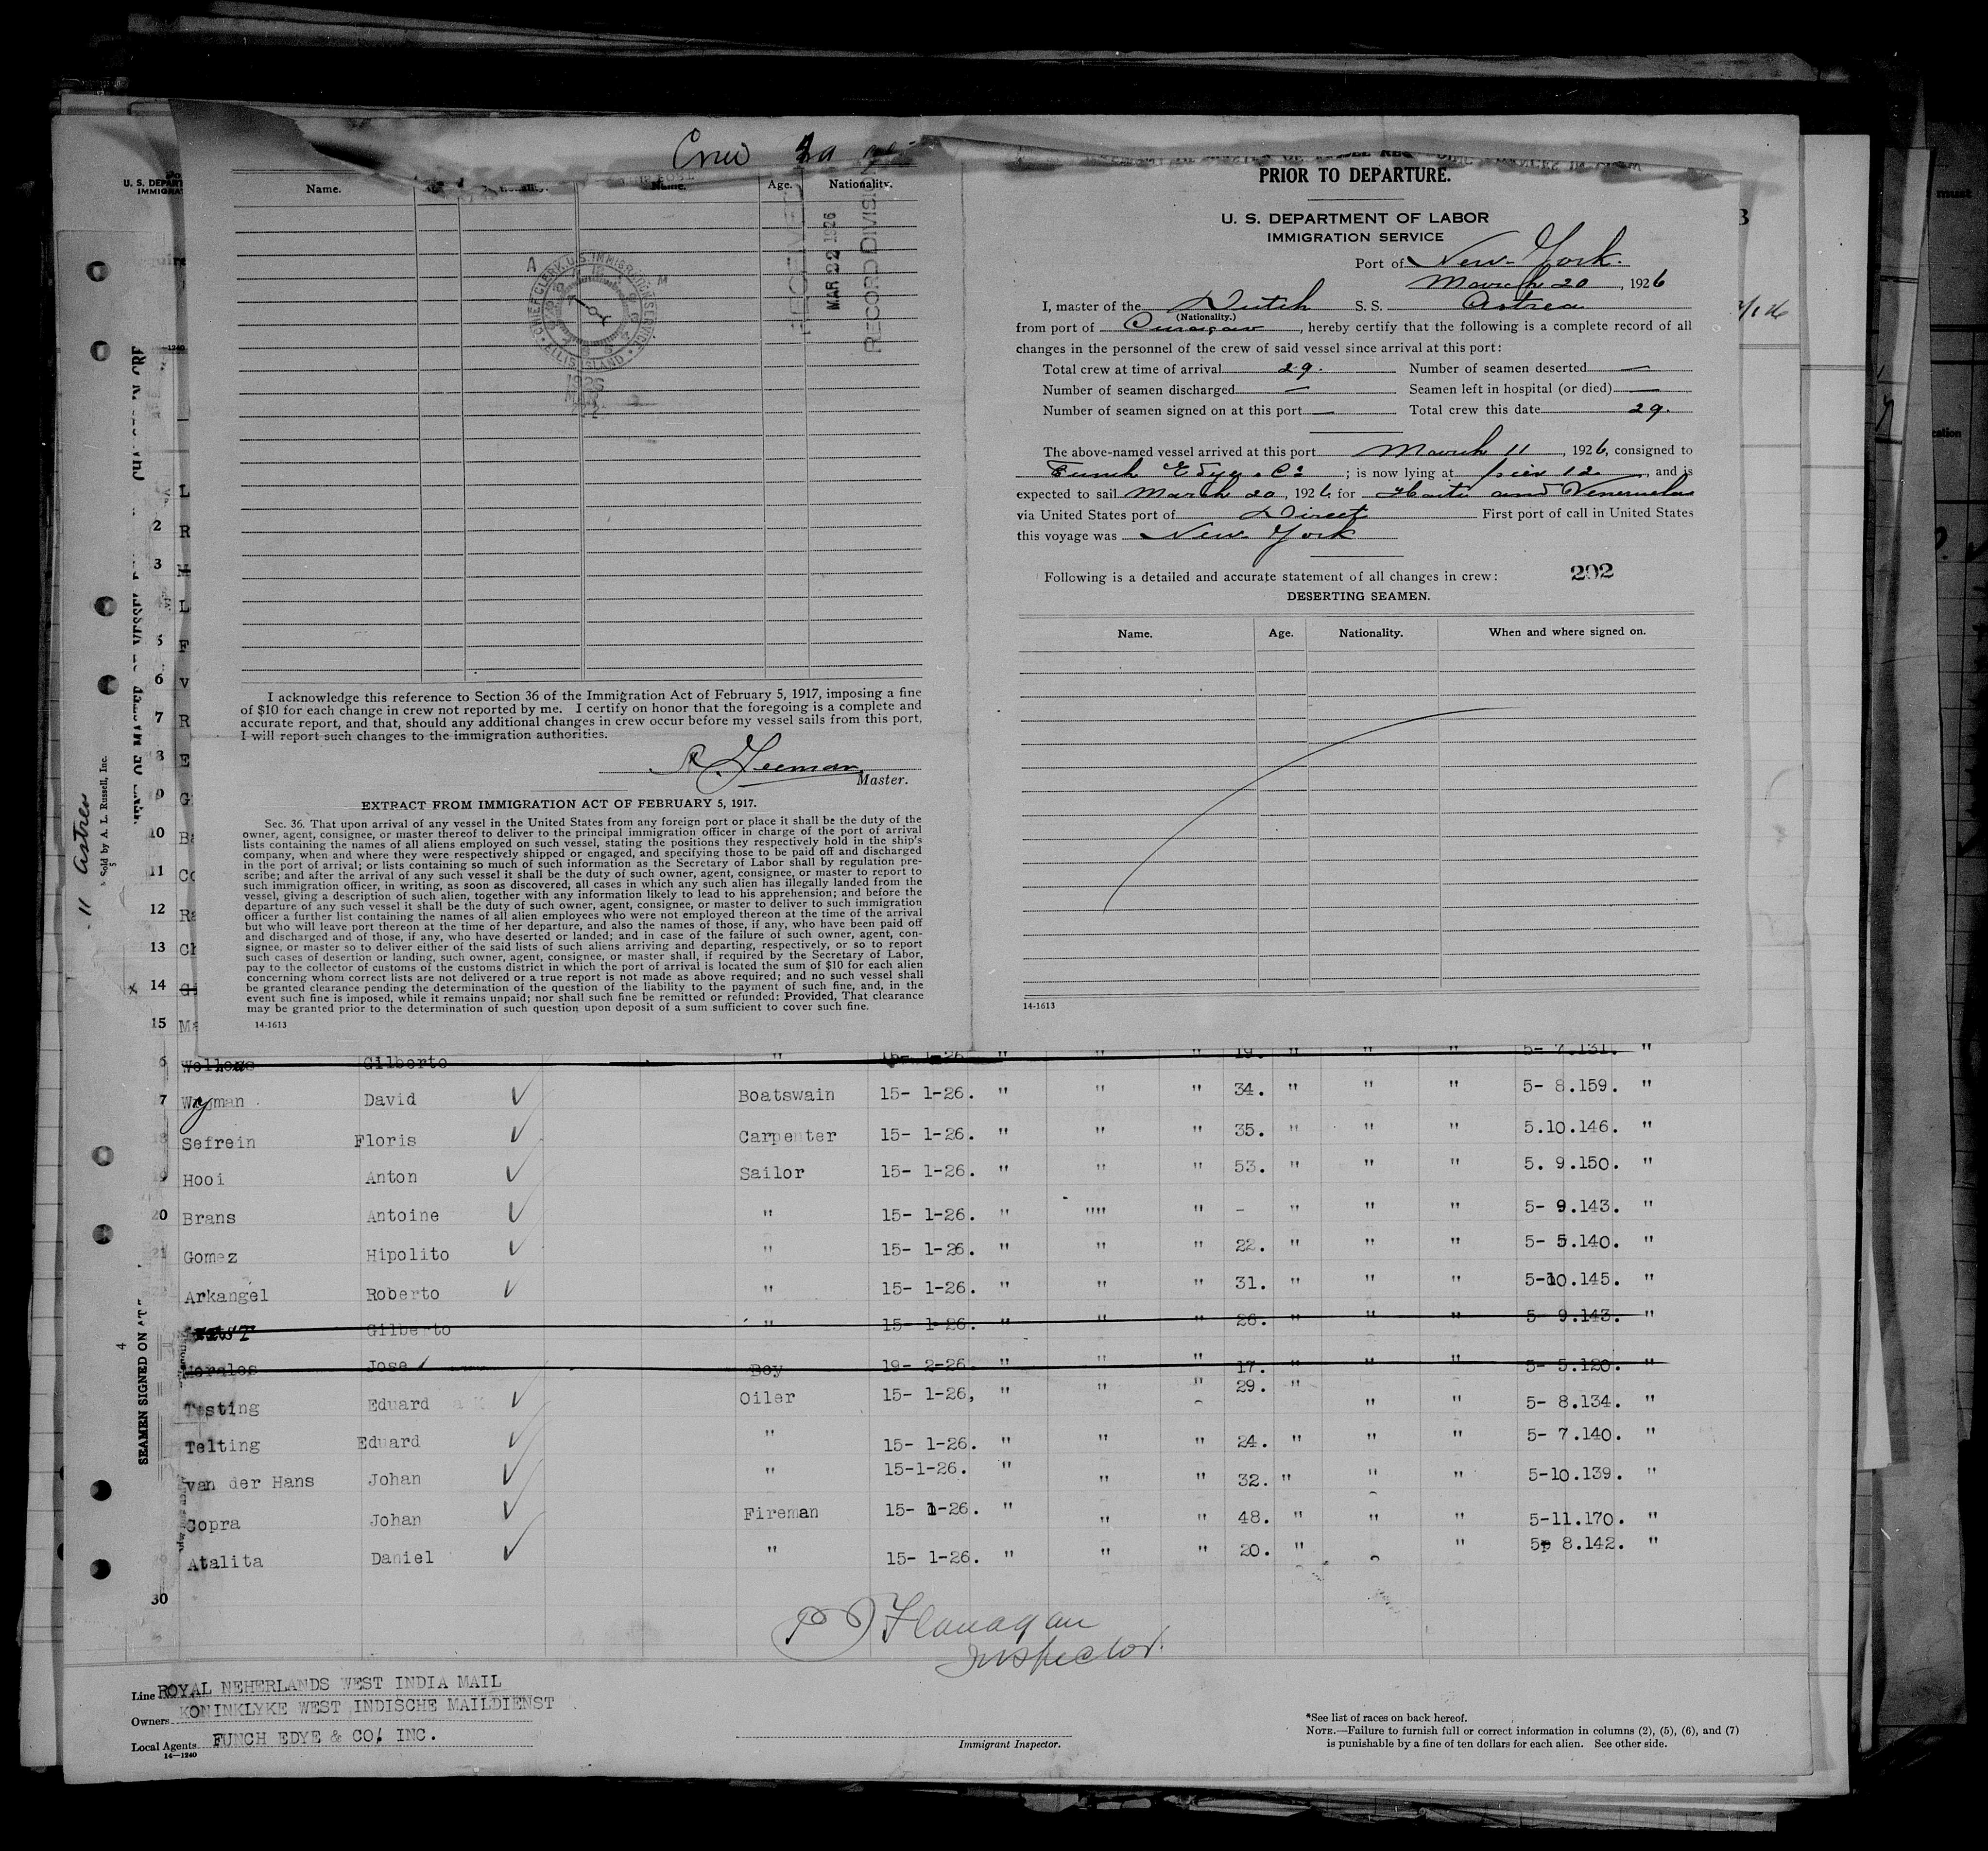 Crew
Name. Name. Age. Nationality.
RECEIVED
MAR 22 1926
RECORD DIVISION
A M
CHIEF CLERK, U.S. IMMIGRATION SERVICE
ELLIS ISLAND
1926
I acknowledge this reference to Section 36 of the Immigration Act of February 5, 1917, imposing a fine
of $10 for each change in crew not reported by me. I certify on honor that the foregoing is a complete and
accurate report, and that, should any additional changes in crew occur before my vessel sails from this port,
I will report such changes to the immigration authorities.
Master.
EXTRACT FROM IMMIGRATION ACT OF FEBRUARY 5, 1917.
Sec. 36. That upon arrival of any vessel in the United States from any foreign port or place it shall be the duty of the
owner, agent, consignee, or master thereof to deliver to the principal immigration officer in charge of the port of arrival
lists containing the names of all aliens employed on such vessel, stating the positions they respectively hold in the ship's
company, when and where they were respectively shipped or engaged, and specifying those to be paid off and discharged
in the port of arrival; or lists containing so much of such information as the Secretary of Labor shall by regulation pre-
scribe; and after the arrival of any such vessel it shall be the duty of such owner, agent, consignee, or master to report to
such immigration officer, in writing, as soon as discovered, all cases in which any such alien has illegally landed from the
vessel, giving a description of such alien, together with any information likely to lead to his apprehension; and before the
departure of any such vessel it shall be the duty of such owner, agent, consignee, or master to deliver to such immigration
officer a further list containing the names of all alien employees who were not employed thereon at the time of the arrival
but who will leave port thereon at the time of her departure, and also the names of those, if any, who have been paid off
and discharged and of those, if any, who have deserted or landed; and in case of the failure of such owner, agent, con-
signee, or master so to deliver either of the said lists of such aliens arriving and departing, respectively, or so to report
such cases of desertion or landing, such owner, agent, consignee, or master shall, if required by the Secretary of Labor,
pay to the collector of customs of the customs district in which the port of arrival is located the sum of $10 for each alien
concerning whom correct lists are not delivered or a true report is not made as above required; and no such vessel shall
be granted clearance pending the determination of the question of the liability to the payment of such fine, and, in the
event such fine is imposed, while it remains unpaid; nor shall such fine be remitted or refunded: Provided, That clearance
may be granted prior to the determination of such question upon deposit of a sum sufficient to cover such fine.
14-1613
PRIOR TO DEPARTURE.
U. S. DEPARTMENT OF LABOR
IMMIGRATION SERVICE
Port of New York.
March 20, 1926
I, master of the Dutch S. S. Astrea
(Nationality.)
from port of Curaçao, hereby certify that the following is a complete record of all
changes in the personnel of the crew of said vessel since arrival at this port:
Total crew at time of arrival 29. Number of seamen deserted —
Number of seamen discharged — Seamen left in hospital (or died) —
Number of seamen signed on at this port — Total crew this date 29.
The above-named vessel arrived at this port March 11, 1926, consigned to
Funch Edye & Co; is now lying at pier 12, and is
expected to sail March 20, 1926 for Haiti and Venezuela
via United States port of Direct First port of call in United States
this voyage was New York
Following is a detailed and accurate statement of all changes in crew: 292
DESERTING SEAMEN.
Name. Age. Nationality. When and where signed on.
14-1613
11 Astrea
Sold by A. L. Russell, Inc.
SEAMEN SIGNED ON AT
2 R
3 M
L
5 F
6 V
7 R
8 E
9 G
10 Ba
11 Co
12 Ra
13 Ch
14 G
15 Ma
6 Gilberto " 15- 1-26 " " " 19. " " " 5- 7.131. "
7 Wayman David ✓ Boatswain 15- 1-26. " " " 34. " " " 5- 8.159. "
18 Sefrein Floris ✓ Carpenter 15- 1-26. " " " 35. " " " 5.10.146. "
19 Hooi Anton ✓ Sailor 15- 1-26. " " " 53. " " " 5. 9.150. "
20 Brans Antoine ✓ " 15- 1-26. " "" " - " " " 5- 9.143. "
21 Gomez Hipolito ✓ " 15- 1-26. " " " 22. " " " 5- 5.140. "
22 Arkangel Roberto ✓ " 15- 1-26. " " " 31. " " " 5-10.145. "
Gilberto " 15- 1-26. " " " 26. " " " 5- 9.143. "
Morales Jose Boy 19- 2-26. " " " 17. " " " 5- 5.120. "
Testing Eduard ✓ Oiler 15- 1-26, " " " 29. " " " 5- 8.134. "
Telting Eduard ✓ " 15- 1-26. " " " 24. " " " 5- 7.140. "
van der Hans Johan ✓ " 15-1-26. " " " 32. " " " 5-10.139. "
Copra Johan ✓ Fireman 15- 1-26. " " " 48. " " " 5-11.170. "
Atalita Daniel ✓ " 15- 1-26. " " " 20. " " 5- 8.142. "
30
P J Flanagan
Inspector.
Line ROYAL NEHERLANDS WEST INDIA MAIL
Owners KONINKLYKE WEST INDISCHE MAILDIENST
Local Agents FUNCH EDYE & CO. INC.
14—1240
Immigrant Inspector.
*See list of races on back hereof.
NOTE.—Failure to furnish full or correct information in columns (2), (5), (6), and (7)
is punishable by a fine of ten dollars for each alien. See other side.